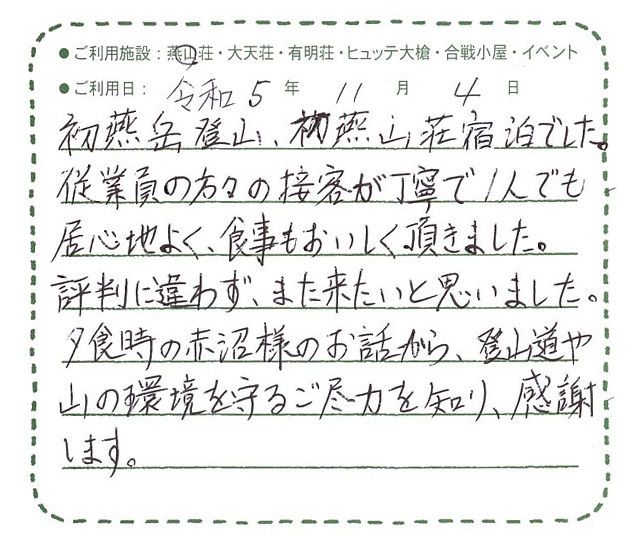 ●ご利用施設：燕山荘・大天荘・有明荘・ヒュッテ大槍・合戦小屋・イベント
●ご利用日： 令和5年 11月 4日
初燕岳登山、初燕山荘宿泊でした。
従業員の方々の接客が丁寧で1人でも
居心地よく、食事もおいしく頂きました。
評判に違わず、また来たいと思いました。
夕食時の赤沼様のお話から、登山道や
山の環境を守るご尽力を知り、感謝
します。